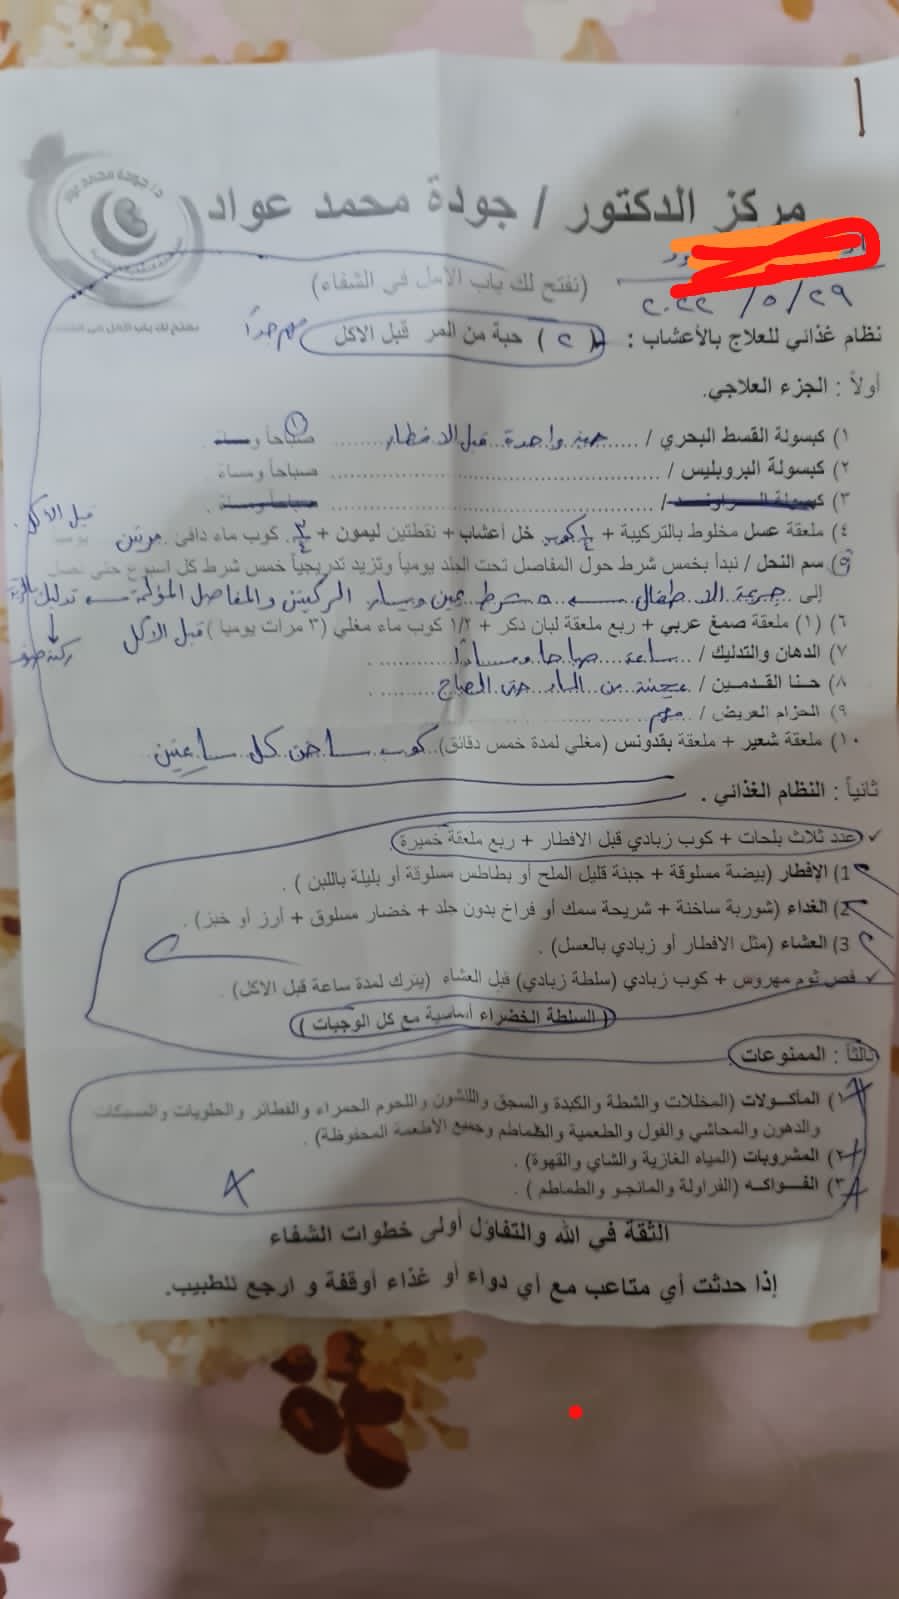 مركز الدكتور / جودة محمد عواد
د/ جودة محمد عواد
نفتح لك باب الأمل في الشفاء
(نفتح لك باب الأمل في الشفاء)
٢٠٢٢/٥/٢٩
نظام غذائي للعلاج بالأعشاب : (٢) حبة من المر قبل الاكل مهم جداً
أولاً : الجزء العلاجي.
١) كبسولة القسط البحري / حبة واحدة قبل الافطار صباحاً و
٢) كبسولة البروبليس / صباحاً ومساءً
٣) كبسولة / صباحاً ومساءً
٤) ملعقة عسل مخلوط بالتركيبة + ١/٤ كوب خل أعشاب + نقطتين ليمون + ٣/٤ كوب ماء دافئ مرتين يومياً قبل الأكل
٥) سم النحل / نبدأ بخمس شرط حول المفاصل تحت الجلد يومياً وتزيد تدريجياً خمس شرط كل اسبوع حتى نصل
إلى جرعة الاطفال ٥ شرط يمين ويسار الركبتين والمفاصل المؤلمة تدليك
٦) (١) ملعقة صمغ عربي + ربع ملعقة لبان ذكر + ١/٢ كوب ماء مغلي (٣ مرات يومياً) قبل الأكل
٧) الدهان والتدليك / ساعة صباحا ومساءً
٨) حنا القدمين / عجينة من المساء حتى الصباح
٩) الحزام العريض / مهم
١٠) ملعقة شعير + ملعقة بقدونس (مغلي لمدة خمس دقائق) كوب ساخن كل ساعتين
ثانياً : النظام الغذائي .
✓ عدد ثلاث بلحات + كوب زبادي قبل الافطار + ربع ملعقة خميرة
1) الإفطار (بيضة مسلوقة + جبنة قليل الملح أو بطاطس مسلوقة أو بليلة باللبن ) .
2) الغداء (شوربة ساخنة + شريحة سمك أو فراخ بدون جلد + خضار مسلوق + أرز أو خبز) .
3) العشاء (مثل الافطار أو زبادي بالعسل) .
✓ فص ثوم مهروس + كوب زبادي (سلطة زبادي) قبل العشاء (يترك لمدة ساعة قبل الاكل) .
( السلطة الخضراء أساسية مع كل الوجبات )
ثالثاً : الممنوعات
١) المأكولات (المخللات والشطة والكبدة والسجق واللنشون واللحوم الحمراء والفطائر والحلويات والمسبكات
والدهون والمحاشي والفول والطعمية والطماطم وجميع الأطعمة المحفوظة) .
٢) المشروبات (المياه الغازية والشاي والقهوة) .
٣) الفواكه (الفراولة والمانجو والطماطم ) .
الثقة في الله والتفاؤل أولى خطوات الشفاء
إذا حدثت أي متاعب مع أي دواء أو غذاء أوقفة و ارجع للطبيب.